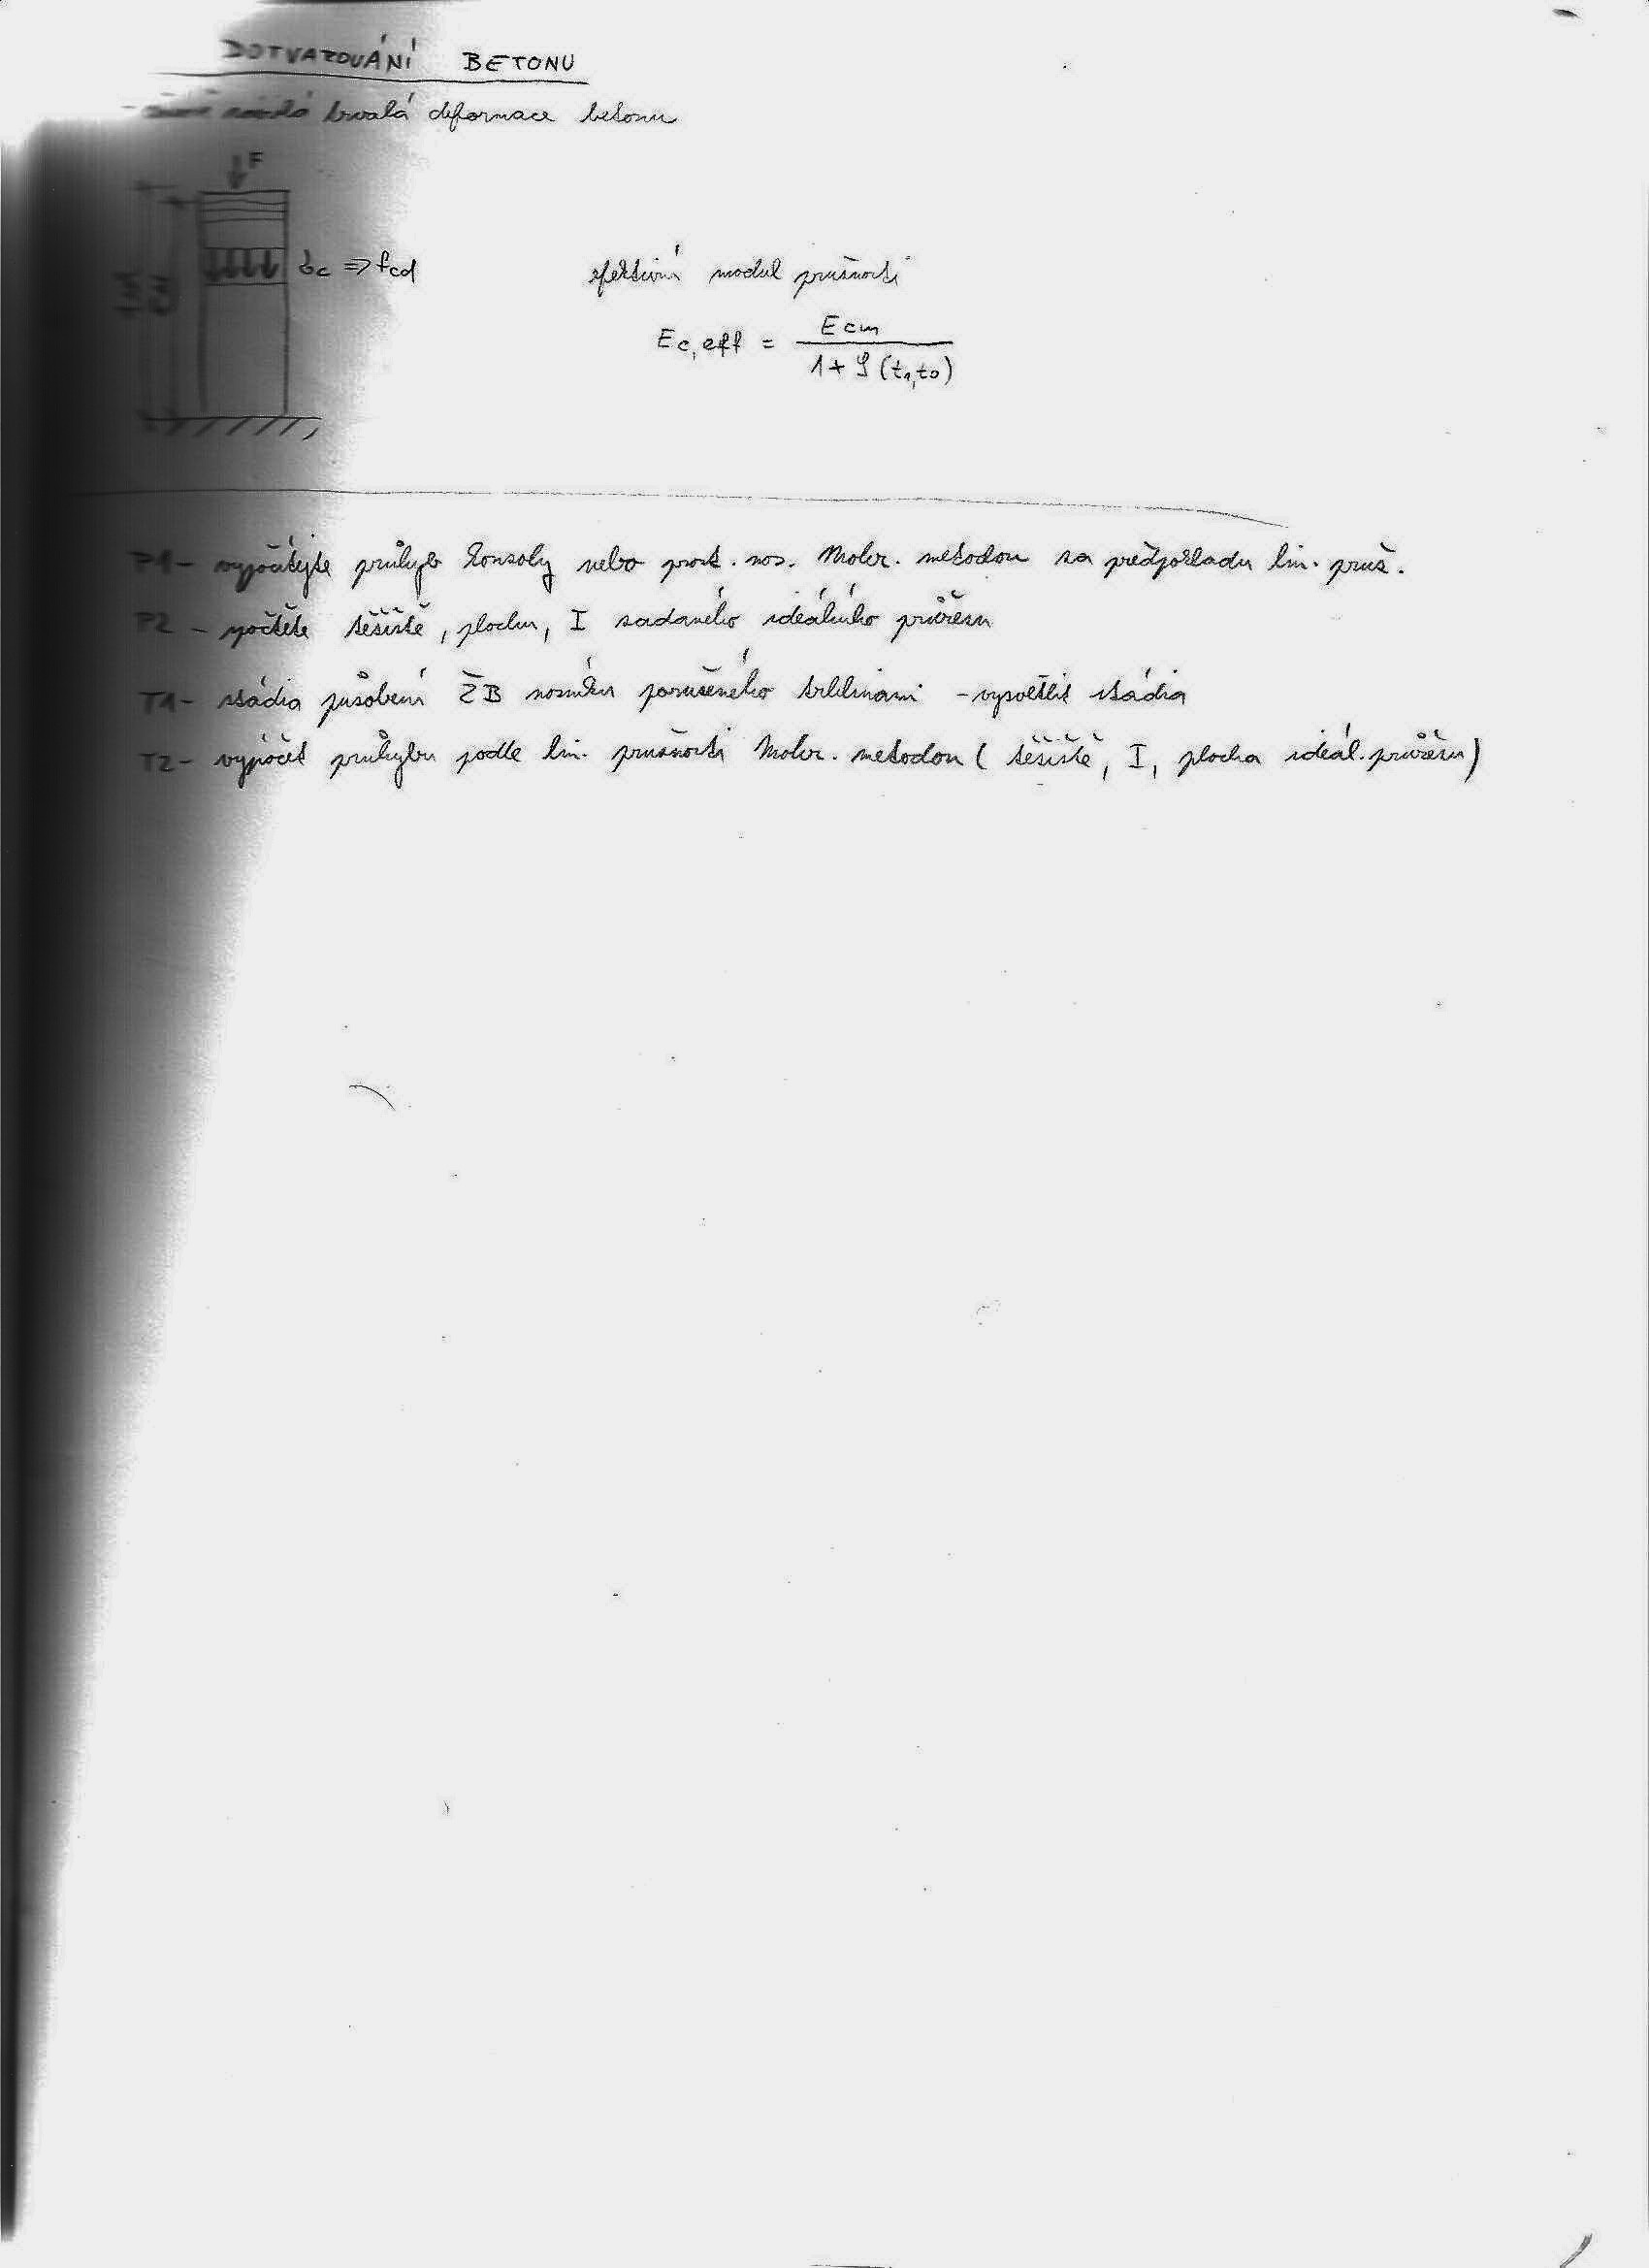 DOTVAROVÁNÍ BETONU
trvalá deformace betonu
F
σc => fcd
efektivní modul pružnosti
Ec,eff = Ecm / 1+φ(t1,t0)
P1 - vypočítejte průhyb konzoly nebo prost. nos. Mohr. metodou za předpokladu lin. pruž.
P2 - počtěte těžiště, plochu, I zadaného ideálního průřezu
T1 - stádia působení ŽB nosníku porušeného trhlinami - vysvětlit stádia
T2 - výpočet průhybu podle lin. pružnosti Mohr. metodou ( těžiště, I, plocha ideál. průřezu)